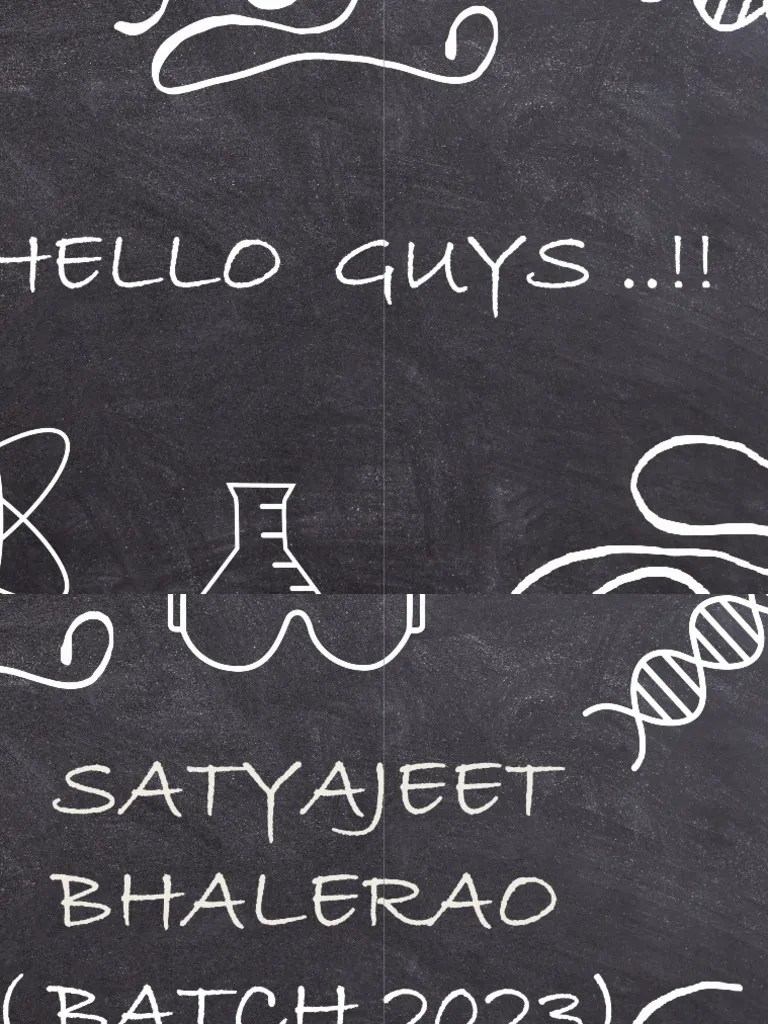 HELLO GUYS ..!!
SATYAJEET
BHALERAO
( BATCH 2023)